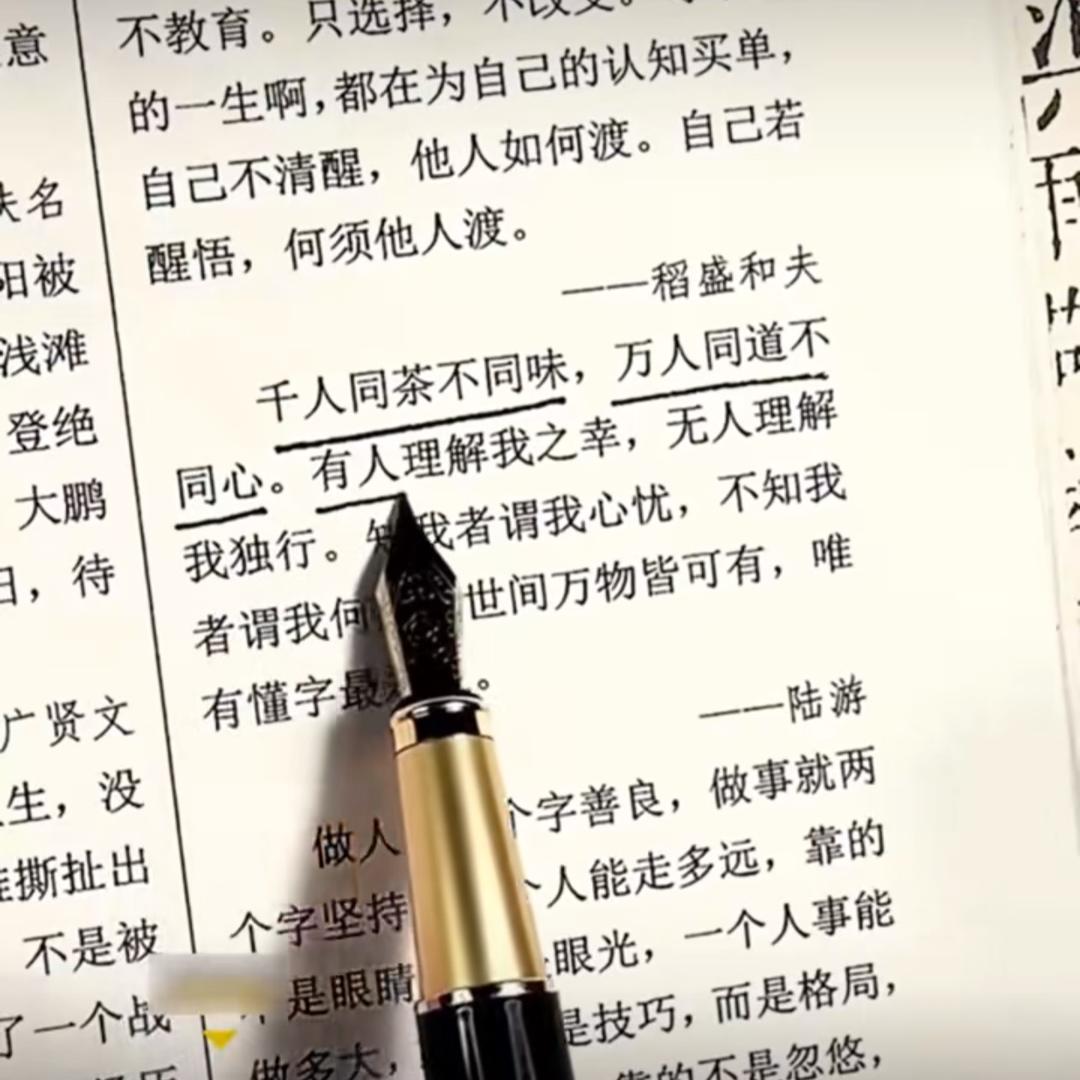 意
失名
阳被
浅滩
登绝
大鹏
日，待
广贤文
生，没
撕扯出
不是被
了一个战
不教育。只选择，不改变。
的一生啊，都在为自己的认知买单，
自己不清醒，他人如何渡。自己若
醒悟，何须他人渡。
——稻盛和夫
千人同茶不同味，万人同道不
同心。有人理解我之幸，无人理解
我独行。知我者谓我心忧，不知我
者谓我何 世间万物皆可有，唯
有懂字最 。
——陆游
做人 个字善良，做事就两
个字坚持 个人能走多远，靠的
不是眼睛 眼光，一个人事能
做多大， 是技巧，而是格局，
靠的不是忽悠，